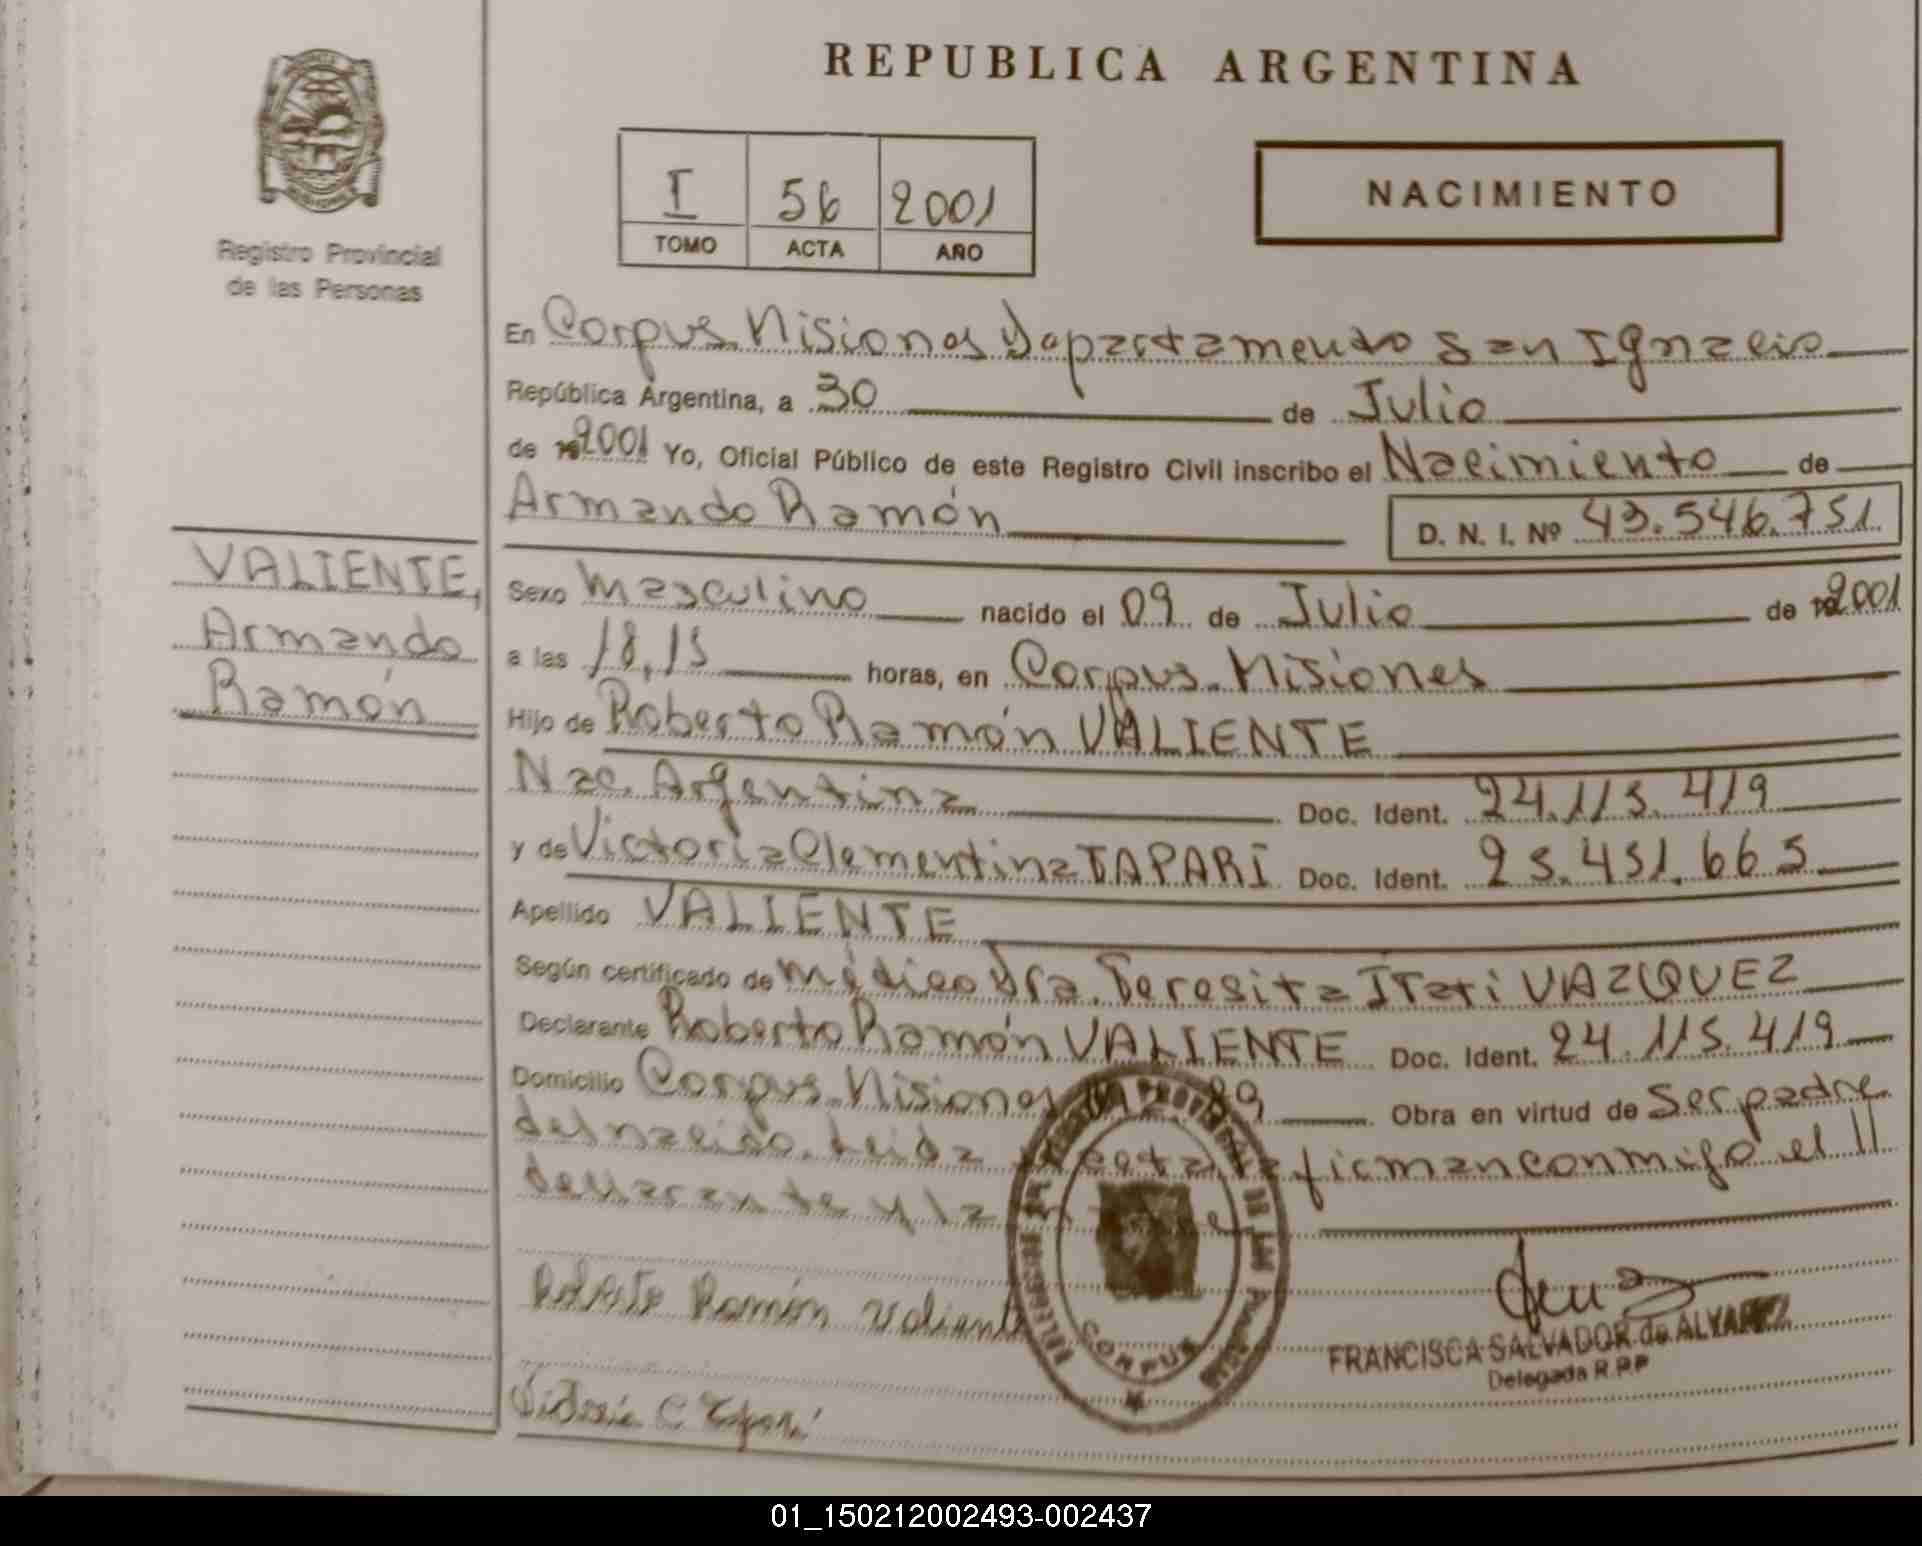 REPUBLICA ARGENTINA
Registro Provincial
de las Personas
I 56 2001
TOMO ACTA AÑO
NACIMIENTO
VALIENTE,
Armando
Ramón
En Corpus. Misiones Departamento San Ignacio
República Argentina, a 30 de Julio
de 2001 Yo, Oficial Público de este Registro Civil inscribo el Nacimiento de
Armando Ramón
D. N. I. Nº 43.546.751
Sexo Masculino nacido el 09 de Julio de 2001
a las 18,15 horas, en Corpus. Misiones
Hijo de Roberto Ramón VALIENTE
Nac. Argentina Doc. Ident. 24.115.419
y de Victoria Clementina TAPARI Doc. Ident. 25.451.665
Apellido VALIENTE
Según certificado de Médico Dra. Teresita ITati VAZQUEZ
Declarante Roberto Ramón VALIENTE Doc. Ident. 24.115.419
Domicilio Corpus. Misiones Obra en virtud de Ser padre
del nacido. Leida firman conmigo el
declarante y la
Roberto Ramón Valiente
FRANCISCA SALVADOR de ALVAREZ
Delegada R.P.P
Victoria C Tapari
CORPUS
01_150212002493-002437